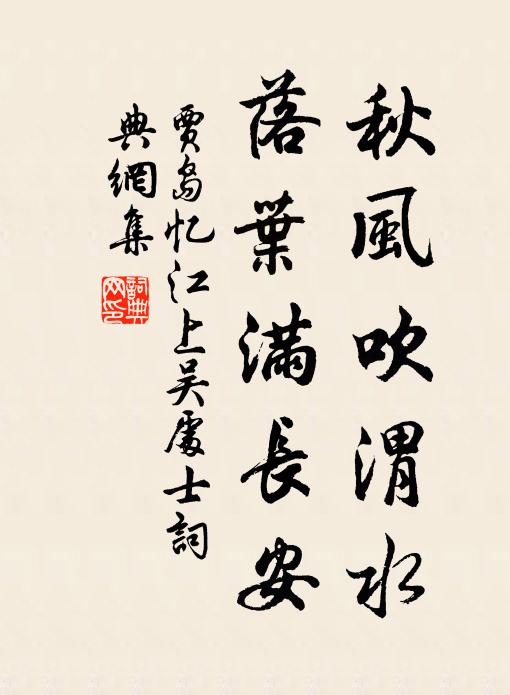 秋風吹渭水
落葉滿長安
賈島忆江上吴處士詞
典網集
詞典
网印